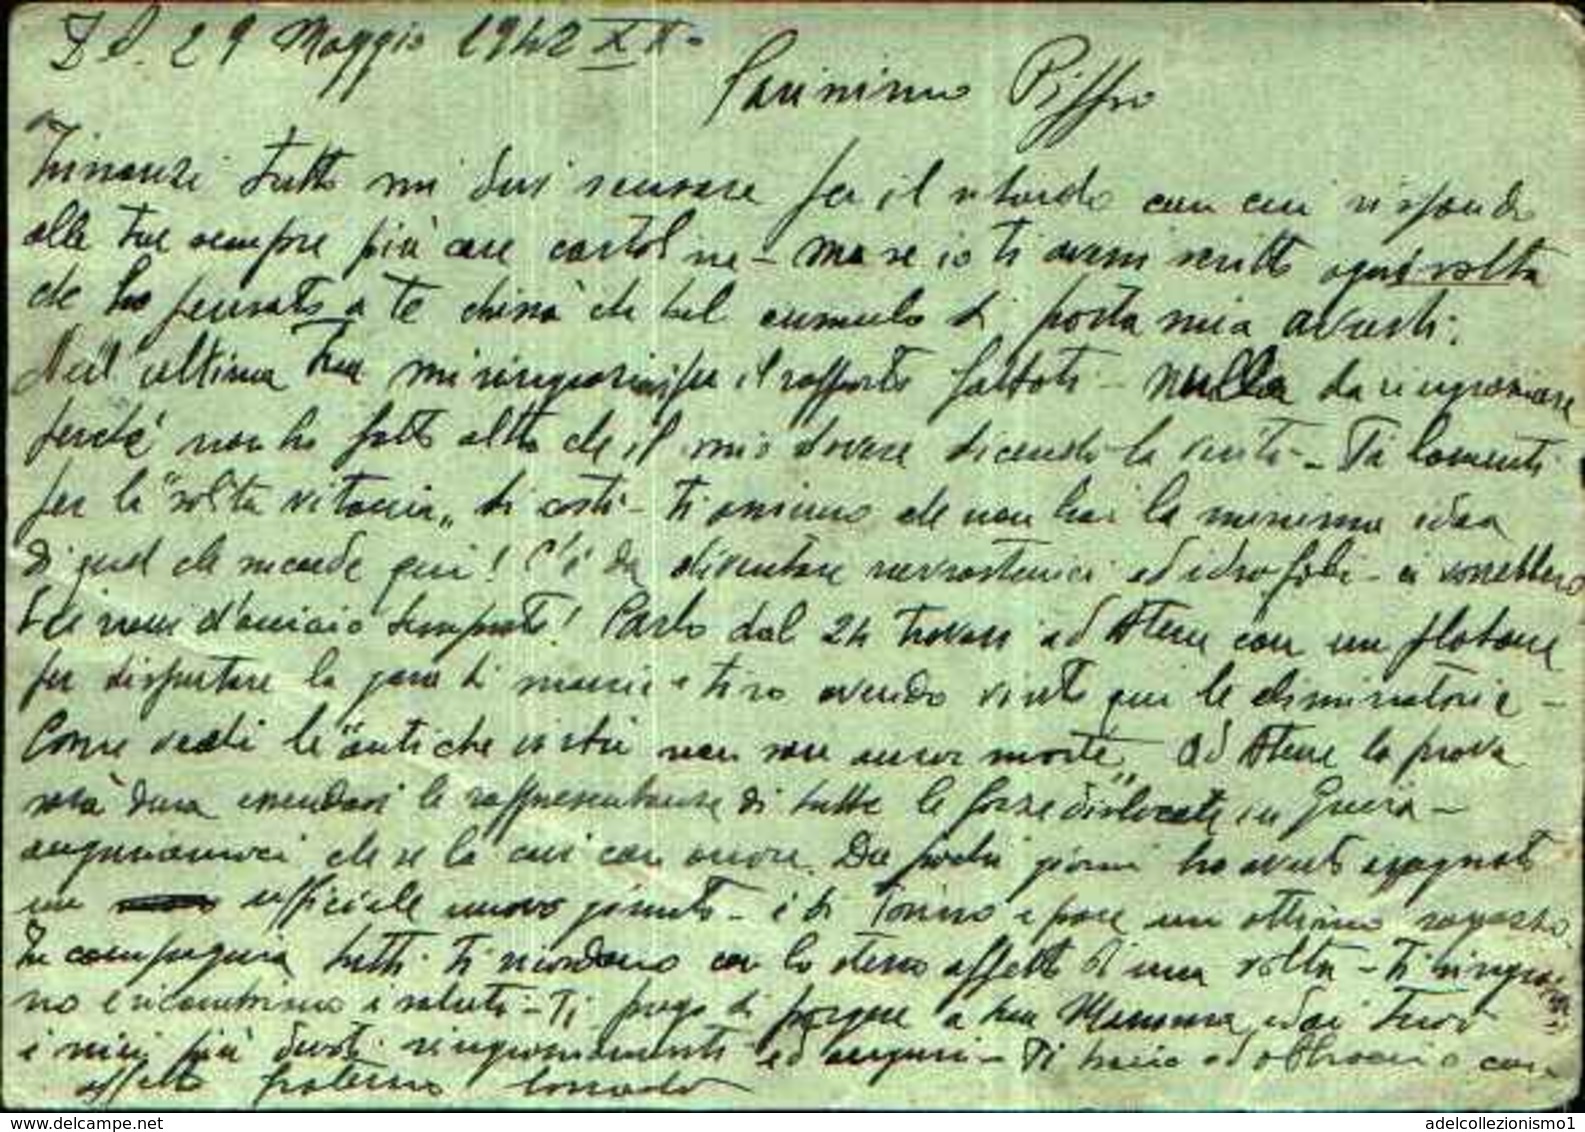 29 Maggio 1942 XX°
Carissimo Piffro
Innanzi tutto mi devi scusare per il ritardo con cui rispondo
alle tue sempre più care cartoline - ma se io ti avessi scritto ogni volta
che ho pensato a te chissà che bel cumulo di posta mia avresti.
Nell'ultima tua mi ringrazi per il rapporto fattoti - nulla da ringraziare
perché non ho fatto altro che il mio dovere dicendo la verità - Ti lamenti
per la "solita vitaccia" di costì - ti assicuro che non hai la minima idea
di quel che succede qui! C'è da diventare nevrastenici ed idrofobi - ci vorrebbero
dei nervi d'acciaio temprato! Carlo dal 24 trovasi ad Atene con un plotone
per disputare la gara di marcia e tiro avendo vinto qui le eliminatorie -
Come vedi le "antiche virtù non sono ancor morte". Ad Atene la prova
sarà dura essendovi le rappresentanze di tutte le forze dislocate in Grecia -
auguriamoci che se la cavi con onore. Da pochi giorni ho avuto assegnato
un ufficiale nuovo giunto - è di Torino e pare un ottimo ragazzo.
In compagnia tutti ti ricordano con lo stesso affetto di una volta - ti ringrazia-
no e ricambiano i saluti - Ti prego di porgere a tua Mamma, ed ai tuoi
i miei più devoti ringraziamenti ed auguri - Ti bacio ed abbraccio con
affetto fraterno Corrado
adelcollezionismo1
www.delcampe.net